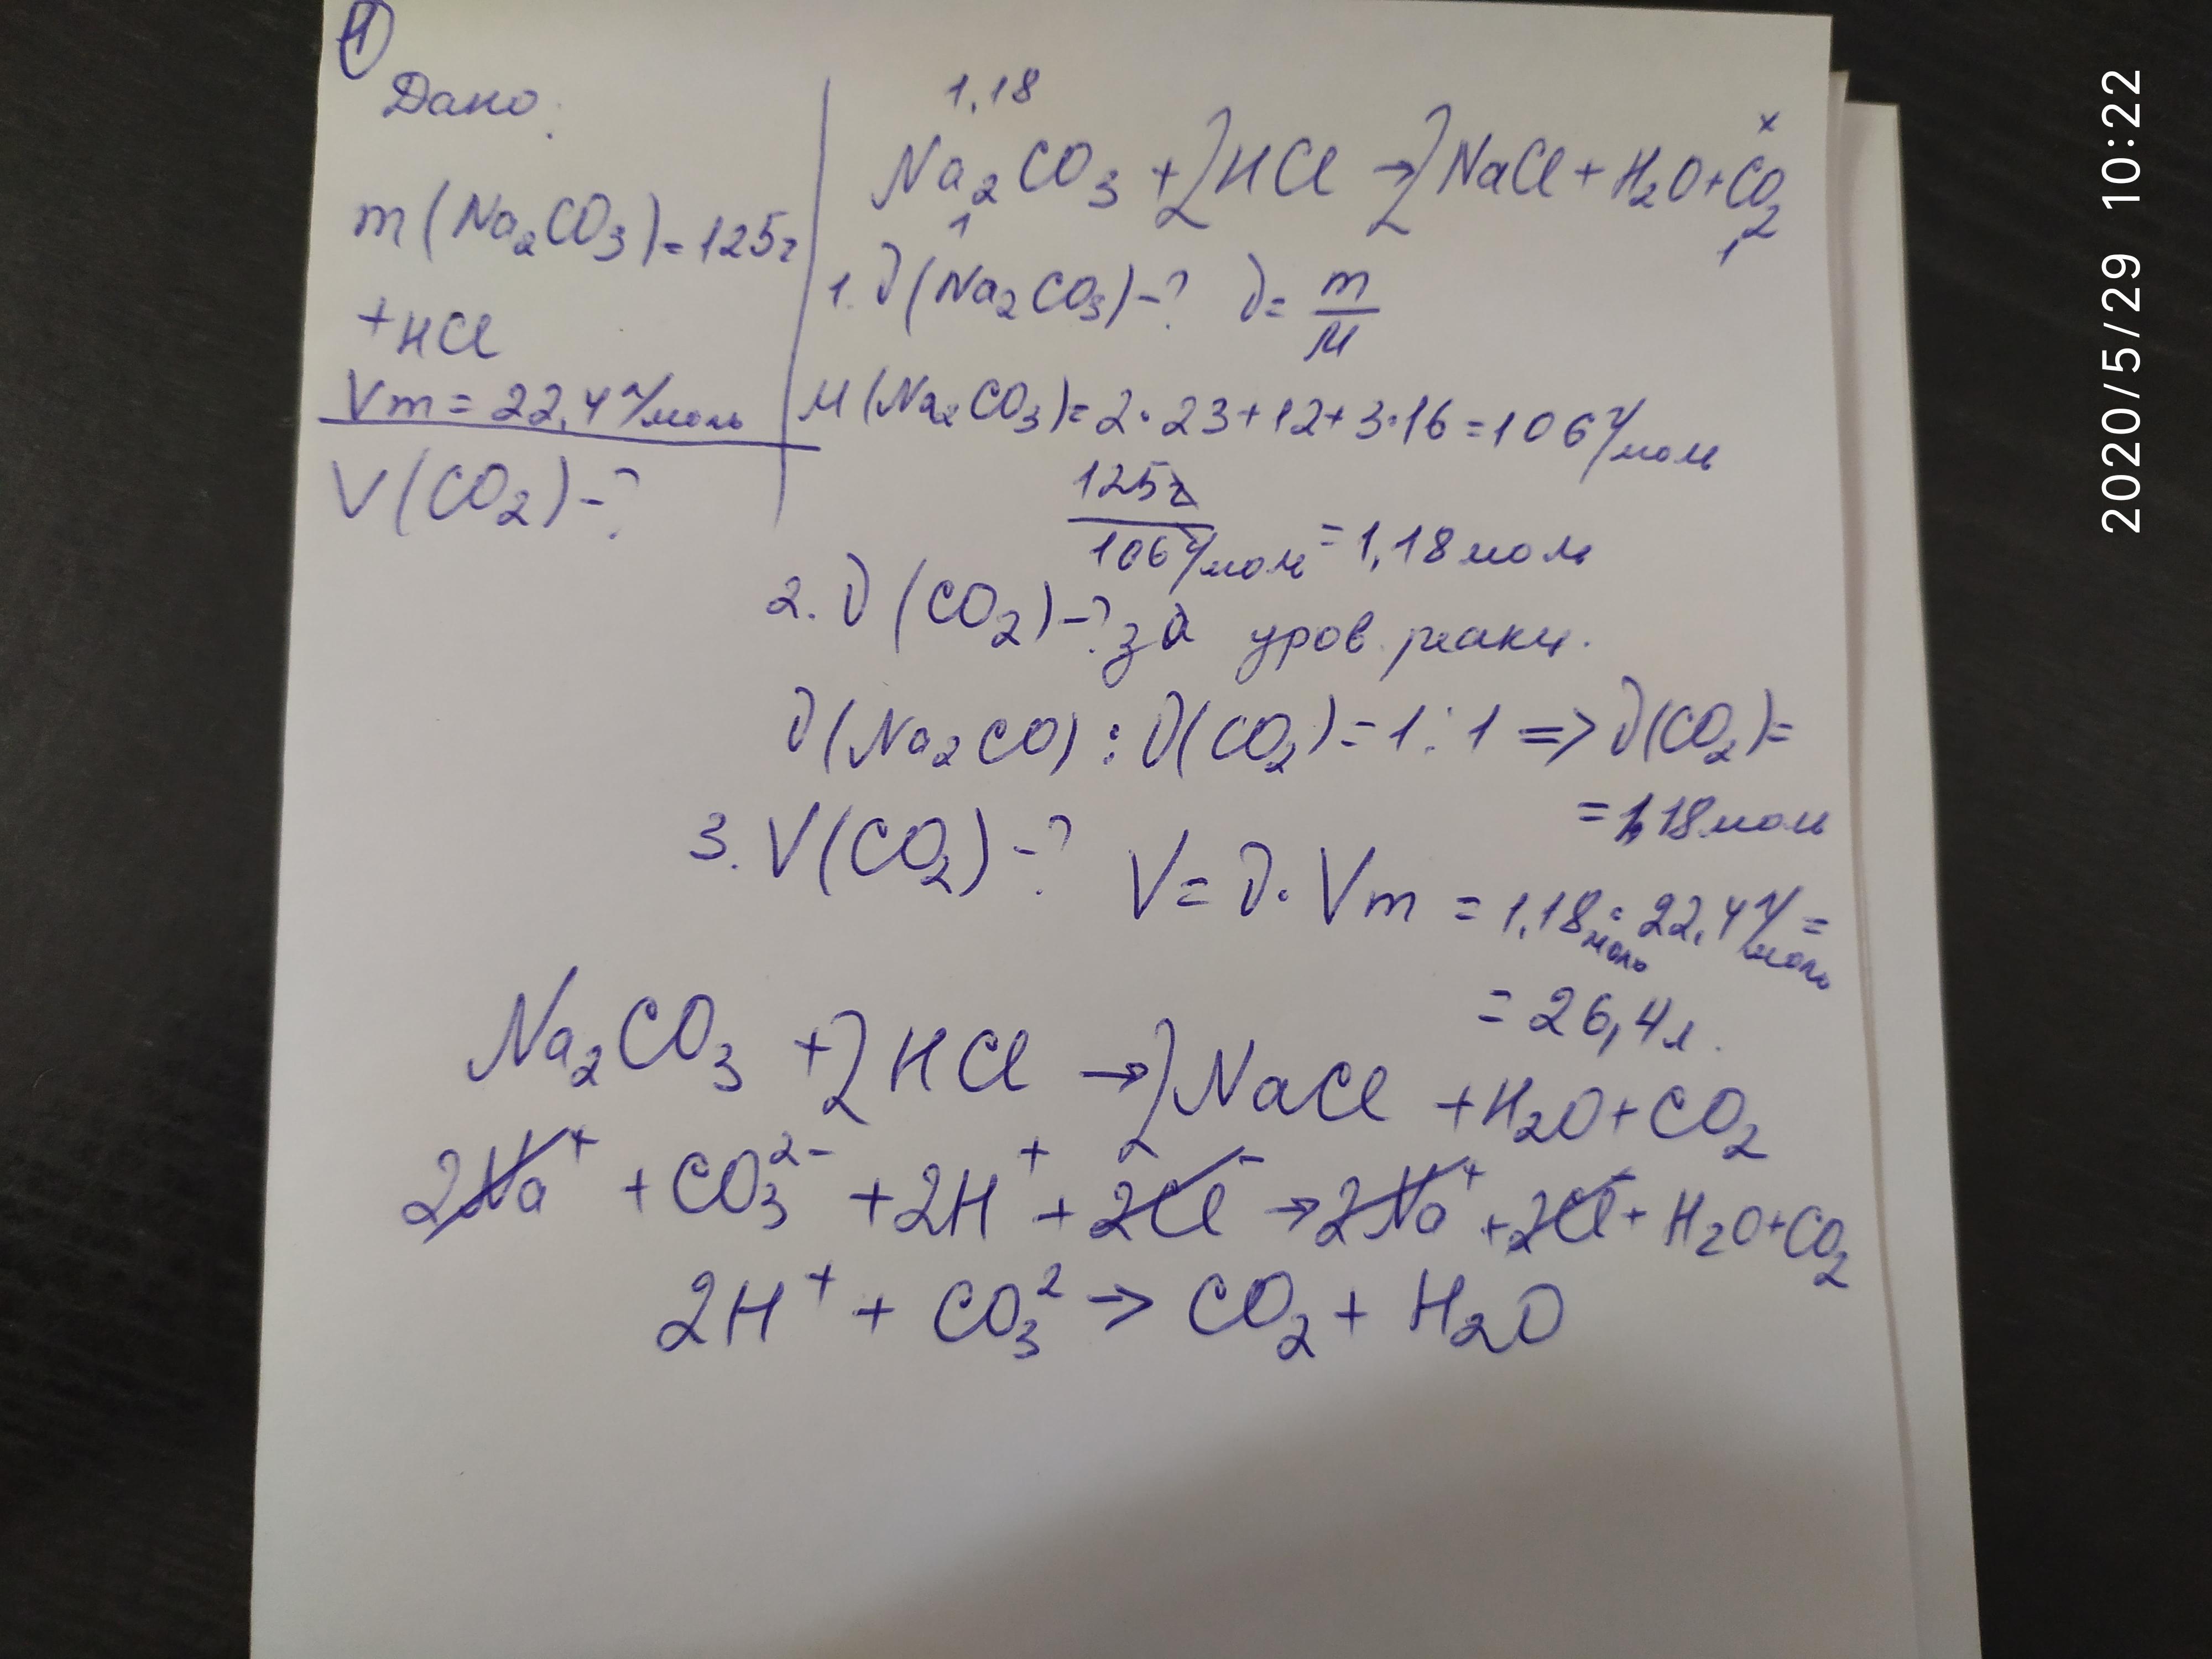 1
Дано:
m(Na₂CO₃)=125г
+HCl
Vm=22,4 л/моль
V(CO₂)-?
1,18 x
Na₂CO₃ + 2HCl → 2NaCl + H₂O + CO₂
1 1
1. ϑ(Na₂CO₃)-? ϑ= m/M
M(Na₂CO₃)=2·23+12+3·16=106 г/моль
125г / 106 г/моль = 1,18 моль
2. ϑ(CO₂)-? за уров. реакц.
ϑ(Na₂CO) : ϑ(CO₂)=1:1 => ϑ(CO₂)=
=1,18 моль
3. V(CO₂)-? V= ϑ·Vm = 1,18 моль · 22,4 л/моль =
= 26,4 л.
Na₂CO₃ + 2HCl → 2NaCl + H₂O + CO₂
2Na⁺ + CO₃²⁻ + 2H⁺ + 2Cl⁻ → 2Na⁺ + 2Cl⁻ + H₂O + CO₂
2H⁺ + CO₃² → CO₂ + H₂O
2020/5/29 10:22